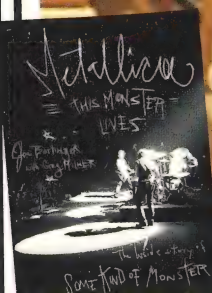 Metallica
THIS MONSTER
LIVES
Joe Berlinger
with Greg Milner
The Inside Story of
SOME KIND OF MONSTER